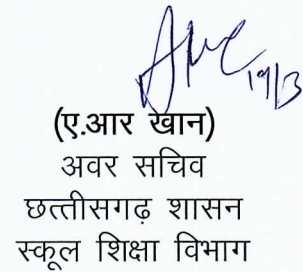 19/3
(ए.आर खान)
अवर सचिव
छत्तीसगढ़ शासन
स्कूल शिक्षा विभाग